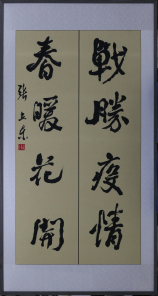 戰勝疫情
春暖花開
張上東